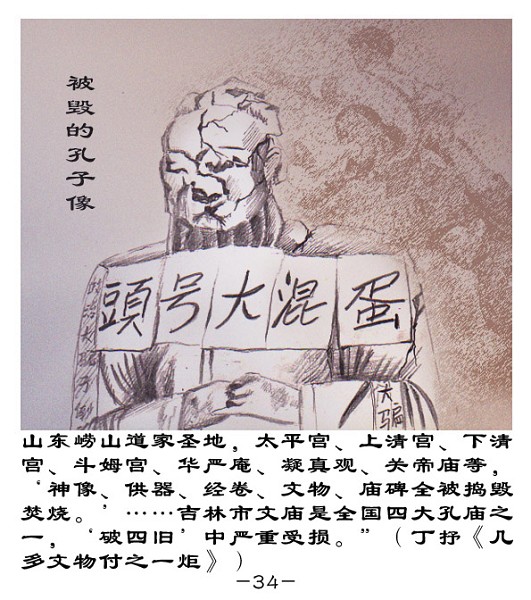 被毁的孔子像
頭号大混蛋
大骗
山东崂山道家圣地，太平宫、上清宫、下清
宫、斗姆宫、华严庵、凝真观、关帝庙等，
‘神像、供器、经卷、文物、庙碑全被捣毁
焚烧。’……吉林市文庙是全国四大孔庙之
一，‘破四旧’中严重受损。”（丁抒《几
多文物付之一炬》）
－34－